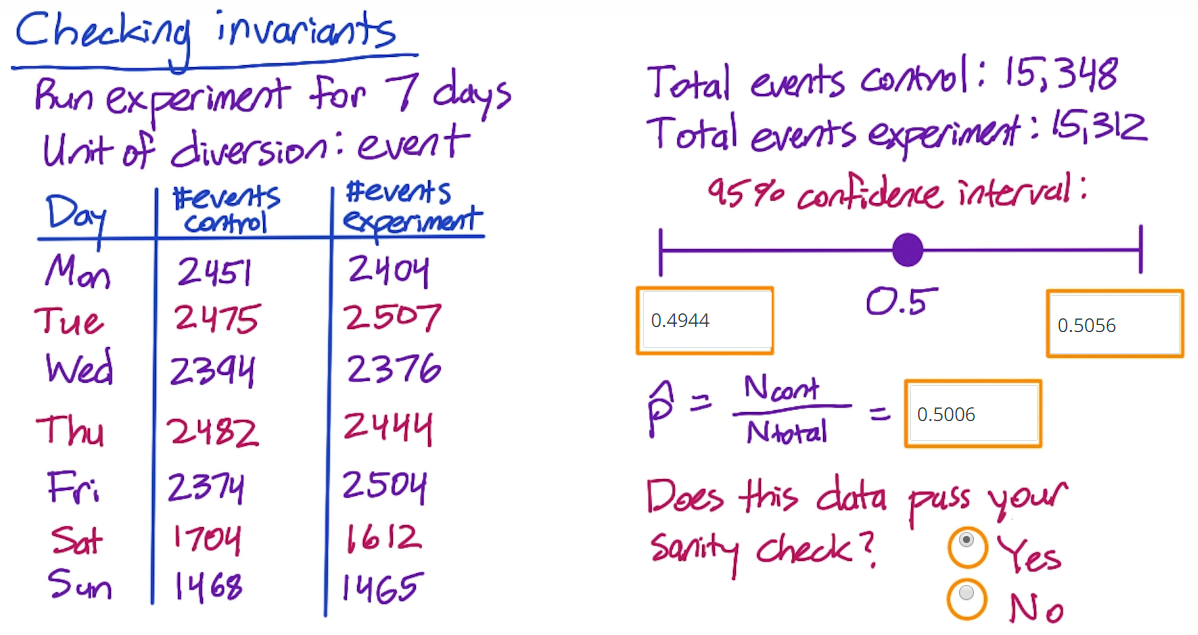 Checking invariants
Run experiment for 7 days
Unit of diversion: event
Day #events control #events experiment
Mon 2451 2404
Tue 2475 2507
Wed 2394 2376
Thu 2482 2444
Fri 2374 2504
Sat 1704 1612
Sun 1468 1465
Total events control: 15,348
Total events experiment: 15,312
95% confidence interval:
0.4944 0.5 0.5056
p̂ = Ncont / Ntotal = 0.5006
Does this data pass your
sanity check? Yes
No